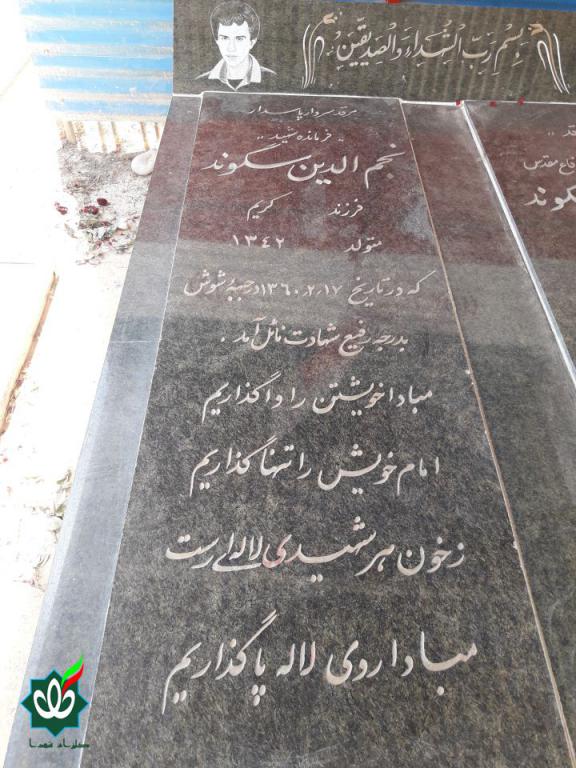 بسم رب الشهداء والصدیقین
مرقد سردار پاسدار
,, فرمانده شهید ,,
نجم الدین سگوند
فرزند کریم
متولد ۱۳۴۲
که در تاریخ ۱۳۶۰٫۲٫۱۷ در جبهه شوش
بدرجه رفیع شهادت نائل آمد .
مبادا خویشتن را واگذاریم
امام خویش را تنها گذاریم
زخون هر شهیدی لاله ای رست
مبادا روی لاله پا گذاریم
گلزار شهدا